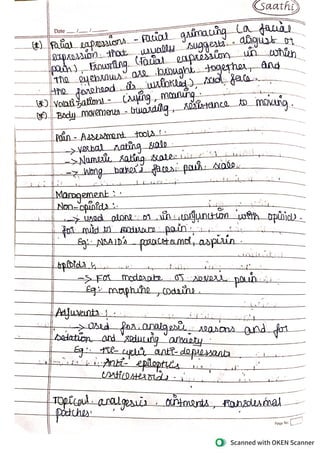 Saathi
Date ___/___/___
(*) Facial expressions - Facial grimacing (a facial
expression that usually suggests disgust or
pain), Frowning (facial expression in which
the eyebrows are brought together, and
the forehead is wrinkled), sad face.
(*) Vocalizations - Crying, moaning.
(*) Body movements - Guarding, resistance to moving.
Pain - Assessment tools :-
-> Verbal rating scale
-> Numeric rating scale
-> Wong baker's faces pain scale.
Management :-
Non-opioids :-
-> used alone or in conjunction with opioids
for mild to moderate pain.
Eg: NSAID's - paracetamol, aspirin.
Opioids :-
-> For moderate or severe pain
Eg: morphine, codeine.
Adjuvants :
-> Used for analgesic reasons and for
sedation and reducing anxiety
Eg: Tri-cyclic anti-depressants
Anti-epileptics
corticosteroids.
Topical analgesics, ointments, Transdermal
patches.
Page No.
Scanned with OKEN Scanner